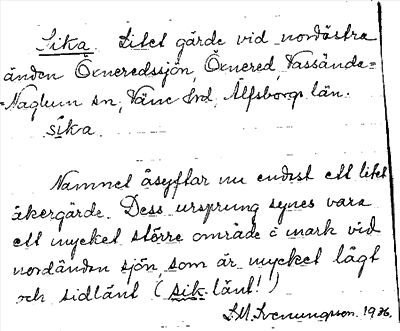 Sika. Litet gärde vid nordöstra
änden Öxneredssjön, Öxnered, Vassända-
-Naglum sn, Väne hrd, Älfsborgs län.
sika.
Namnet åsyftar nu endast ett litet
åkergärde. Dess ursprung synes vara
ett mycket större område i mark vid
nordänden sjön som är mycket lågt
och sidlänt (sik-länt!)
S.M. Svenungsson. 1936.